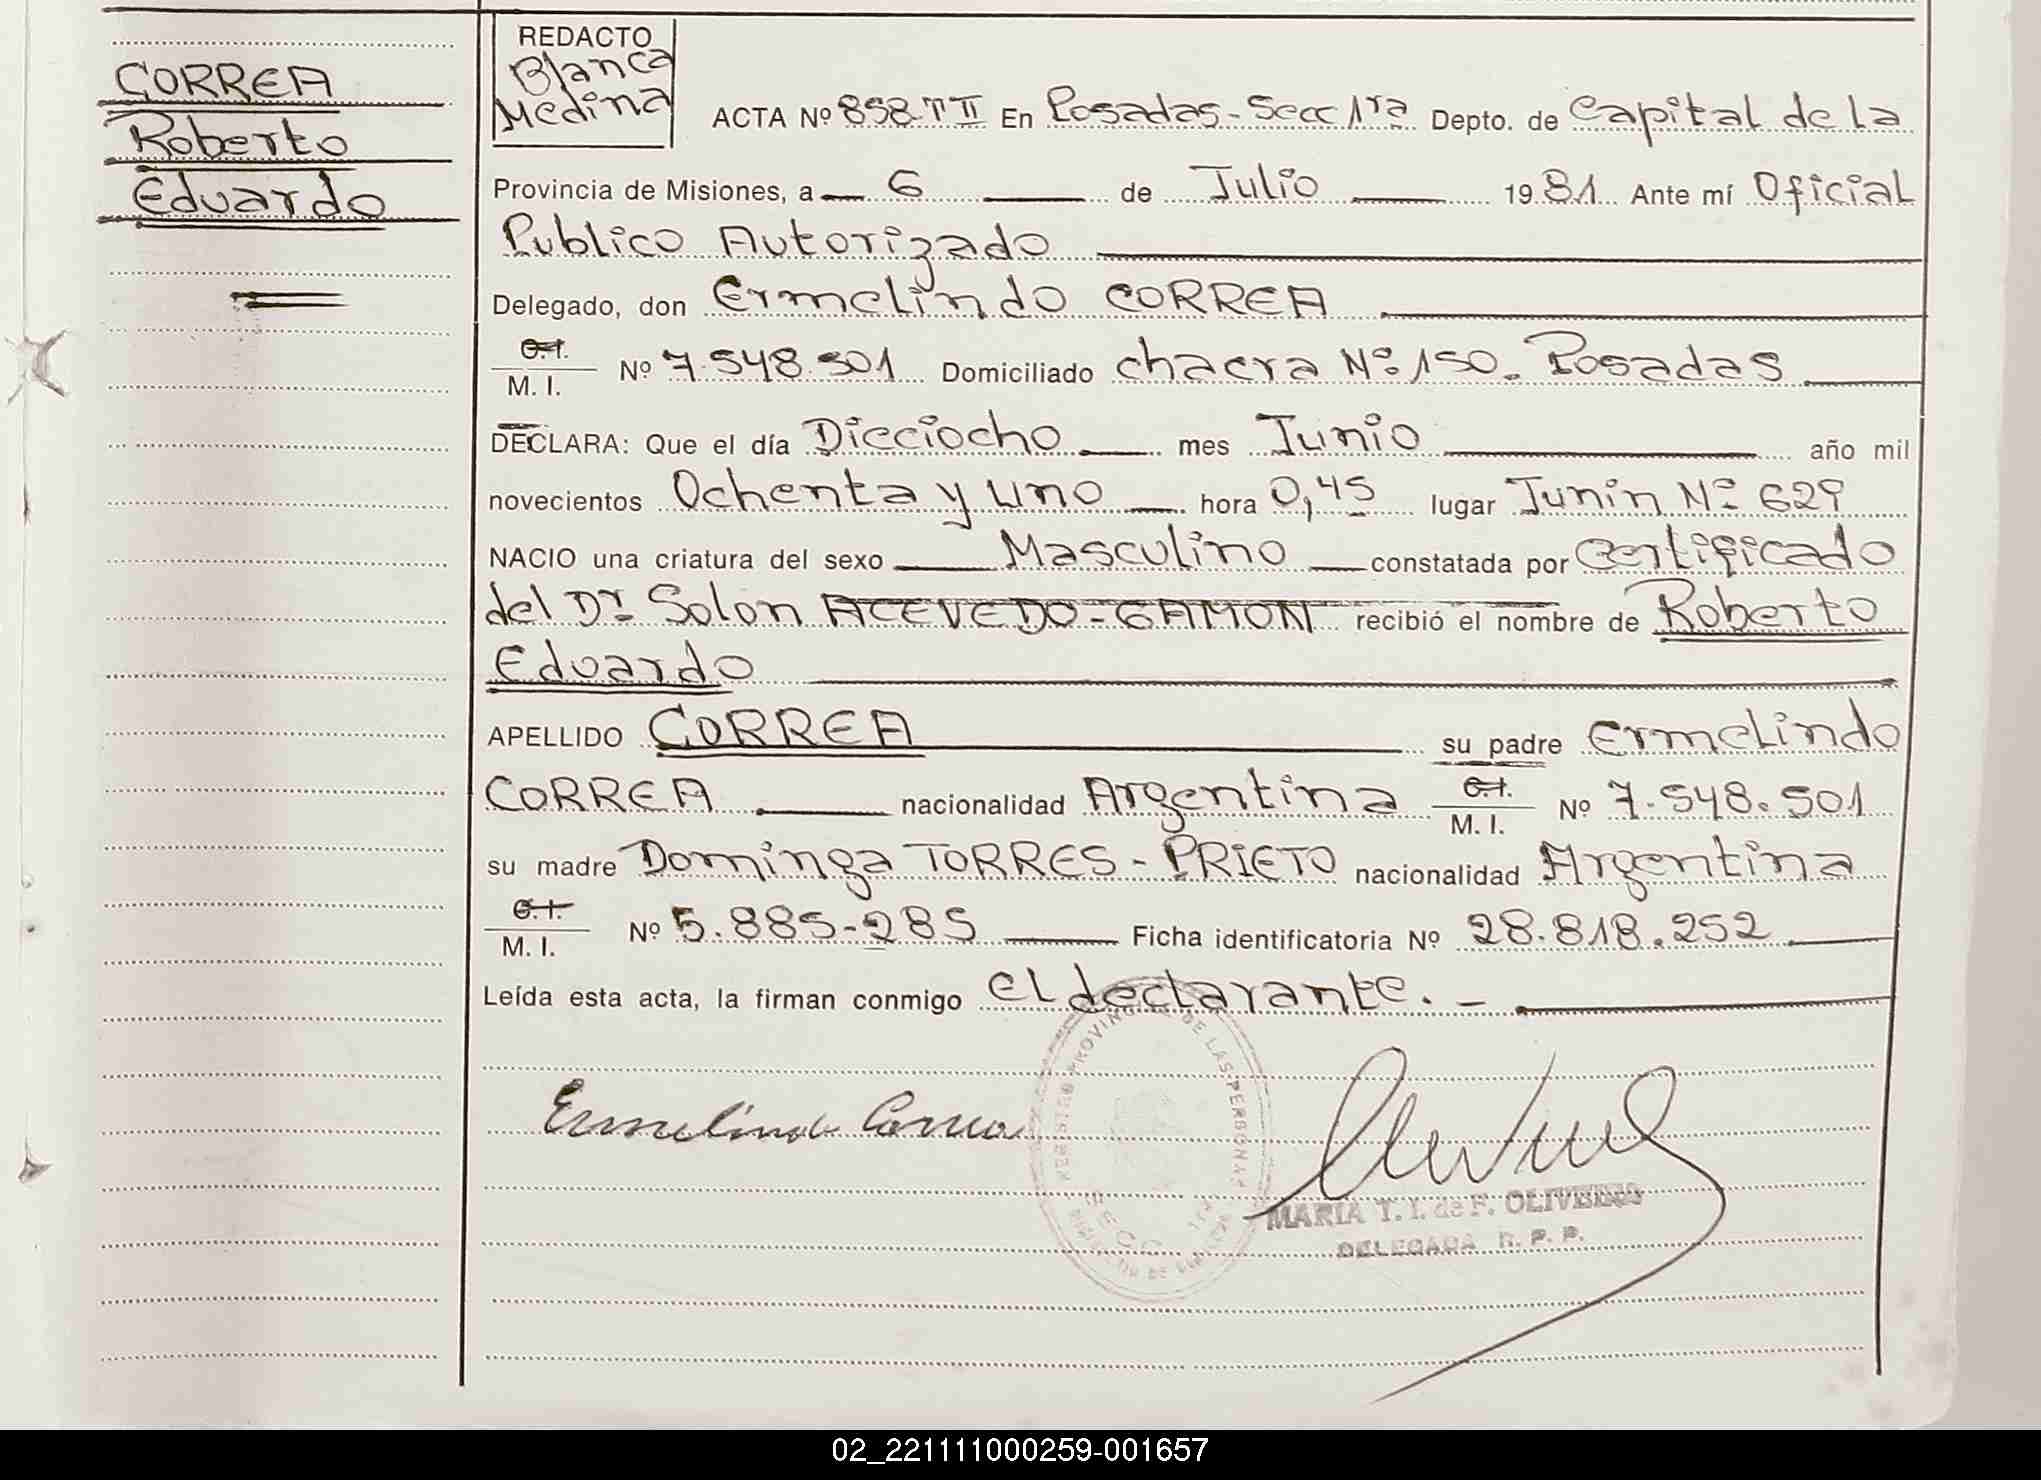 CORREA
Roberto
Eduardo
REDACTO
Blanca
Medina
ACTA Nº 858-T II En Posadas-Secc 1ra Depto. de Capital de la
Provincia de Misiones, a 6 de Julio 1981 Ante mí Oficial
Publico Autorizado
Delegado, don Ermelindo CORREA
C.I.
M. I. Nº 7.548.501 Domiciliado chacra Nº 150. Posadas
DECLARA: Que el día Dieciocho mes Junio año mil
novecientos Ochenta y uno hora 0,45 lugar Junin Nº 629
NACIO una criatura del sexo Masculino constatada por Certificado
del Dr. Solon ACEVEDO-GAMON recibió el nombre de Roberto
Eduardo
APELLIDO CORREA su padre Ermelindo
CORREA nacionalidad Argentina C.I.
M. I. Nº 7.548.501
su madre Dominga TORRES - PRIETO nacionalidad Argentina
C.I.
M. I. Nº 5.885-285 Ficha identificatoria Nº 28.818.252
Leída esta acta, la firman conmigo el declarante. -
Ermelindo Correa
REGISTRO PROVINCIAL DE LAS PERSONAS
SECC 1ra
MARIA T. I. de F. OLIVEIRO
DELEGADA R. P. P.
02_221111000259-001657